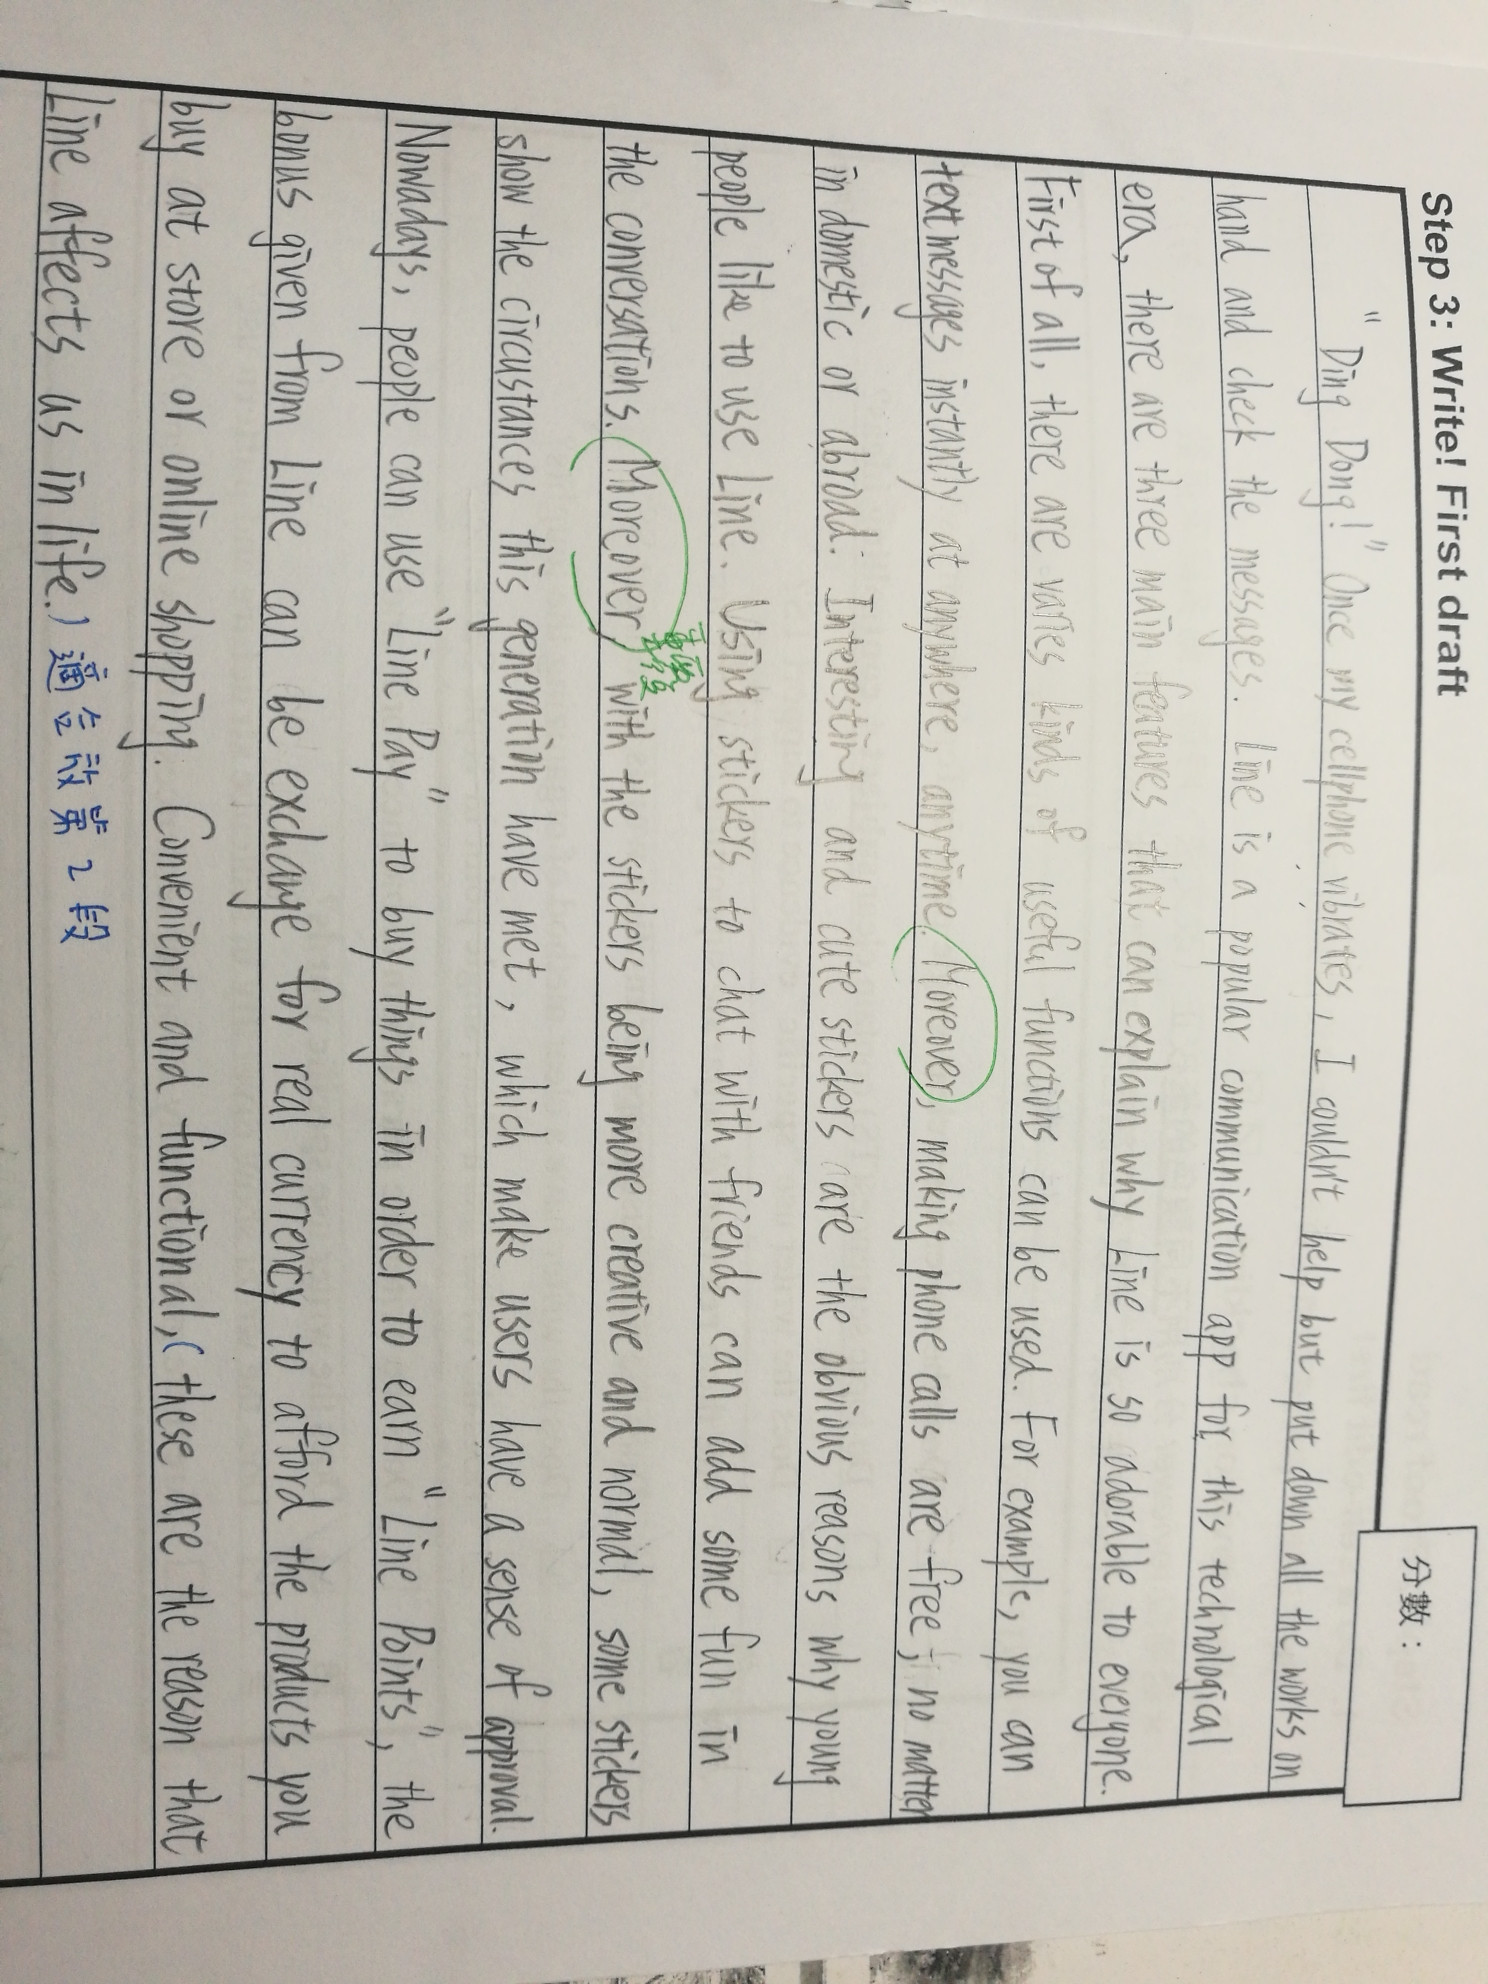 Step 3: Write! First draft
分數：
"Ding Dong!" Once my cellphone vibrates, I couldn't help but put down all the works on
hand and check the messages. Line is a popular communication app for this technological
era, there are three main features that can explain why Line is so adorable to everyone.
First of all, there are varies kinds of useful functions can be used. For example, you can
text messages instantly at anywhere, anytime. Moreover, making phone calls are free, no matter
in domestic or abroad. Interesting and cute stickers are the obvious reasons why young
people like to use Line. Using stickers to chat with friends can add some fun in
重複
the conversations. Moreover, with the stickers being more creative and normal, some stickers
show the circustances this generation have met, which make users have a sense of approval.
Nowadays, people can use "Line Pay" to buy things in order to earn "Line Points", the
bonus given from Line can be exchange for real currency to afford the products you
buy at store or online shopping. Convenient and functional, (these are the reason that
Line affects us in life.) 適合放第2段